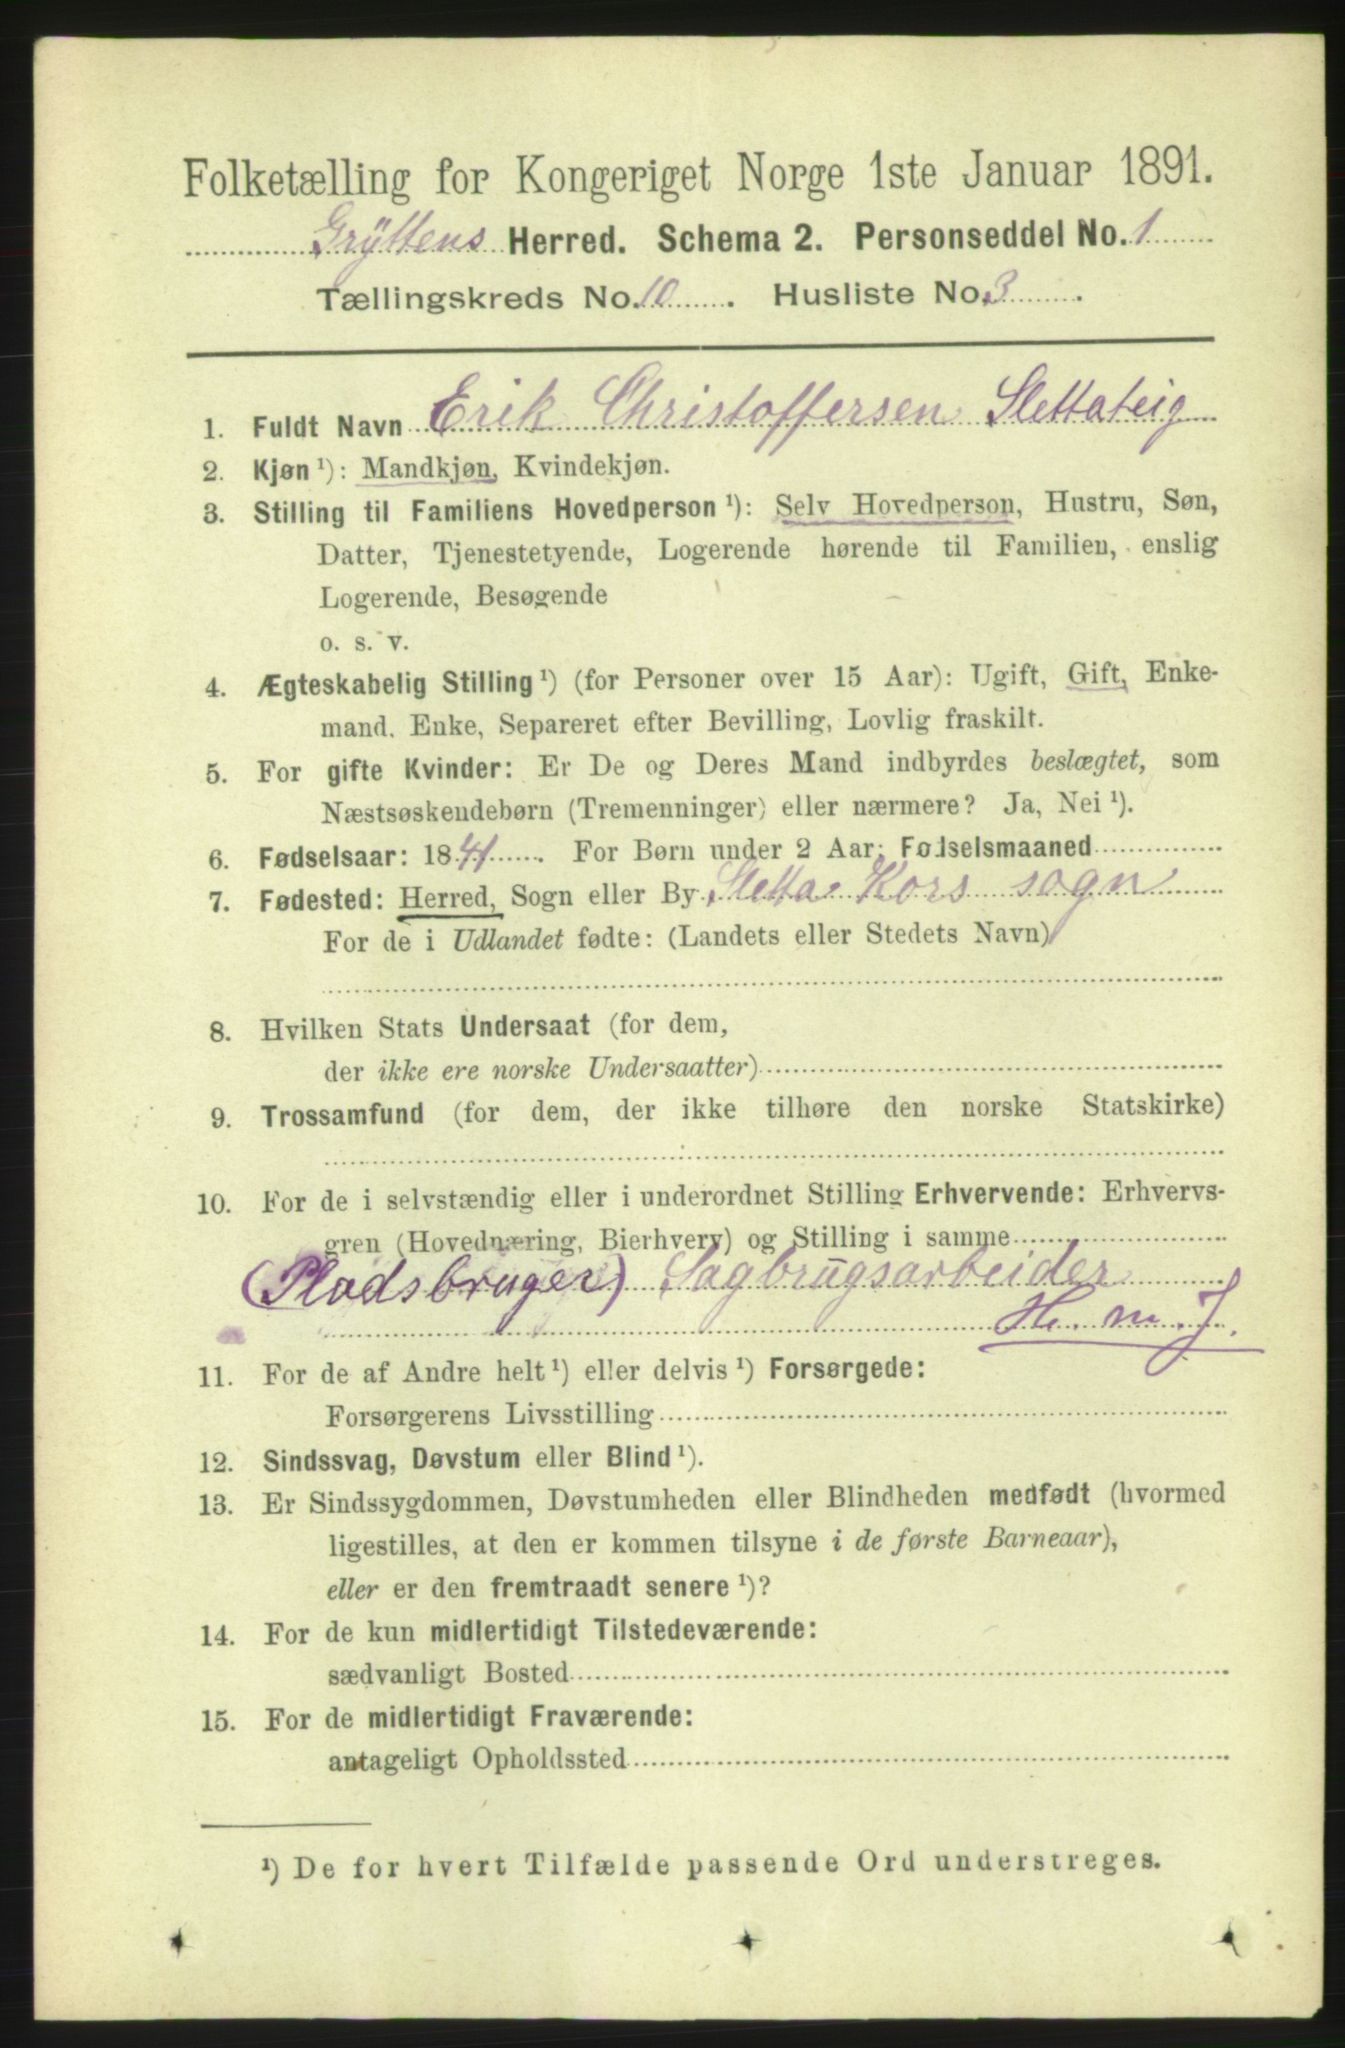 Folketælling for Kongeriget Norge 1ste Januar 1891.
Grÿttens Herred. Schema 2. Personseddel No. 1
Tællingskreds No. 10. Husliste No. 3.
1. Fuldt Navn Erik Christoffersen Slettateig
2. Kjøn¹): Mandkjøn, Kvindekjøn.
3. Stilling til Familiens Hovedperson¹): Selv Hovedperson, Hustru, Søn,
Datter, Tjenestetyende, Logerende hørende til Familien, enslig
Logerende, Besøgende
o. s. v.
4. Ægteskabelig Stilling¹) (for Personer over 15 Aar): Ugift, Gift, Enke-
mand, Enke, Separeret efter Bevilling, Lovlig fraskilt.
5. For gifte Kvinder: Er De og Deres Mand indbyrdes beslægtet, som
Næstsøskendebørn (Tremenninger) eller nærmere? Ja, Nei¹).
6. Fødselsaar: 1841. For Børn under 2 Aar: Fødselsmaaned
7. Fødested: Herred, Sogn eller By Sletta Kors sogn
For de i Udlandet fødte: (Landets eller Stedets Navn)
8. Hvilken Stats Undersaat (for dem,
der ikke ere norske Undersaatter)
9. Trossamfund (for dem, der ikke tilhøre den norske Statskirke)
10. For de i selvstændig eller i underordnet Stilling Erhvervende: Erhvervs-
gren (Hovednæring, Bierhverv) og Stilling i samme
(Pladsbruger) Sagbrugsarbeider
H. m. J.
11. For de af Andre helt¹) eller delvis¹) Forsørgede:
Forsørgerens Livsstilling
12. Sindssvag, Døvstum eller Blind¹).
13. Er Sindssygdommen, Døvstumheden eller Blindheden medfødt (hvormed
ligestilles, at den er kommen tilsyne i de første Barneaar),
eller er den fremtraadt senere¹)?
14. For de kun midlertidigt Tilstedeværende:
sædvanligt Bosted
15. For de midlertidigt Fraværende:
antageligt Opholdssted
¹) De for hvert Tilfælde passende Ord understreges.